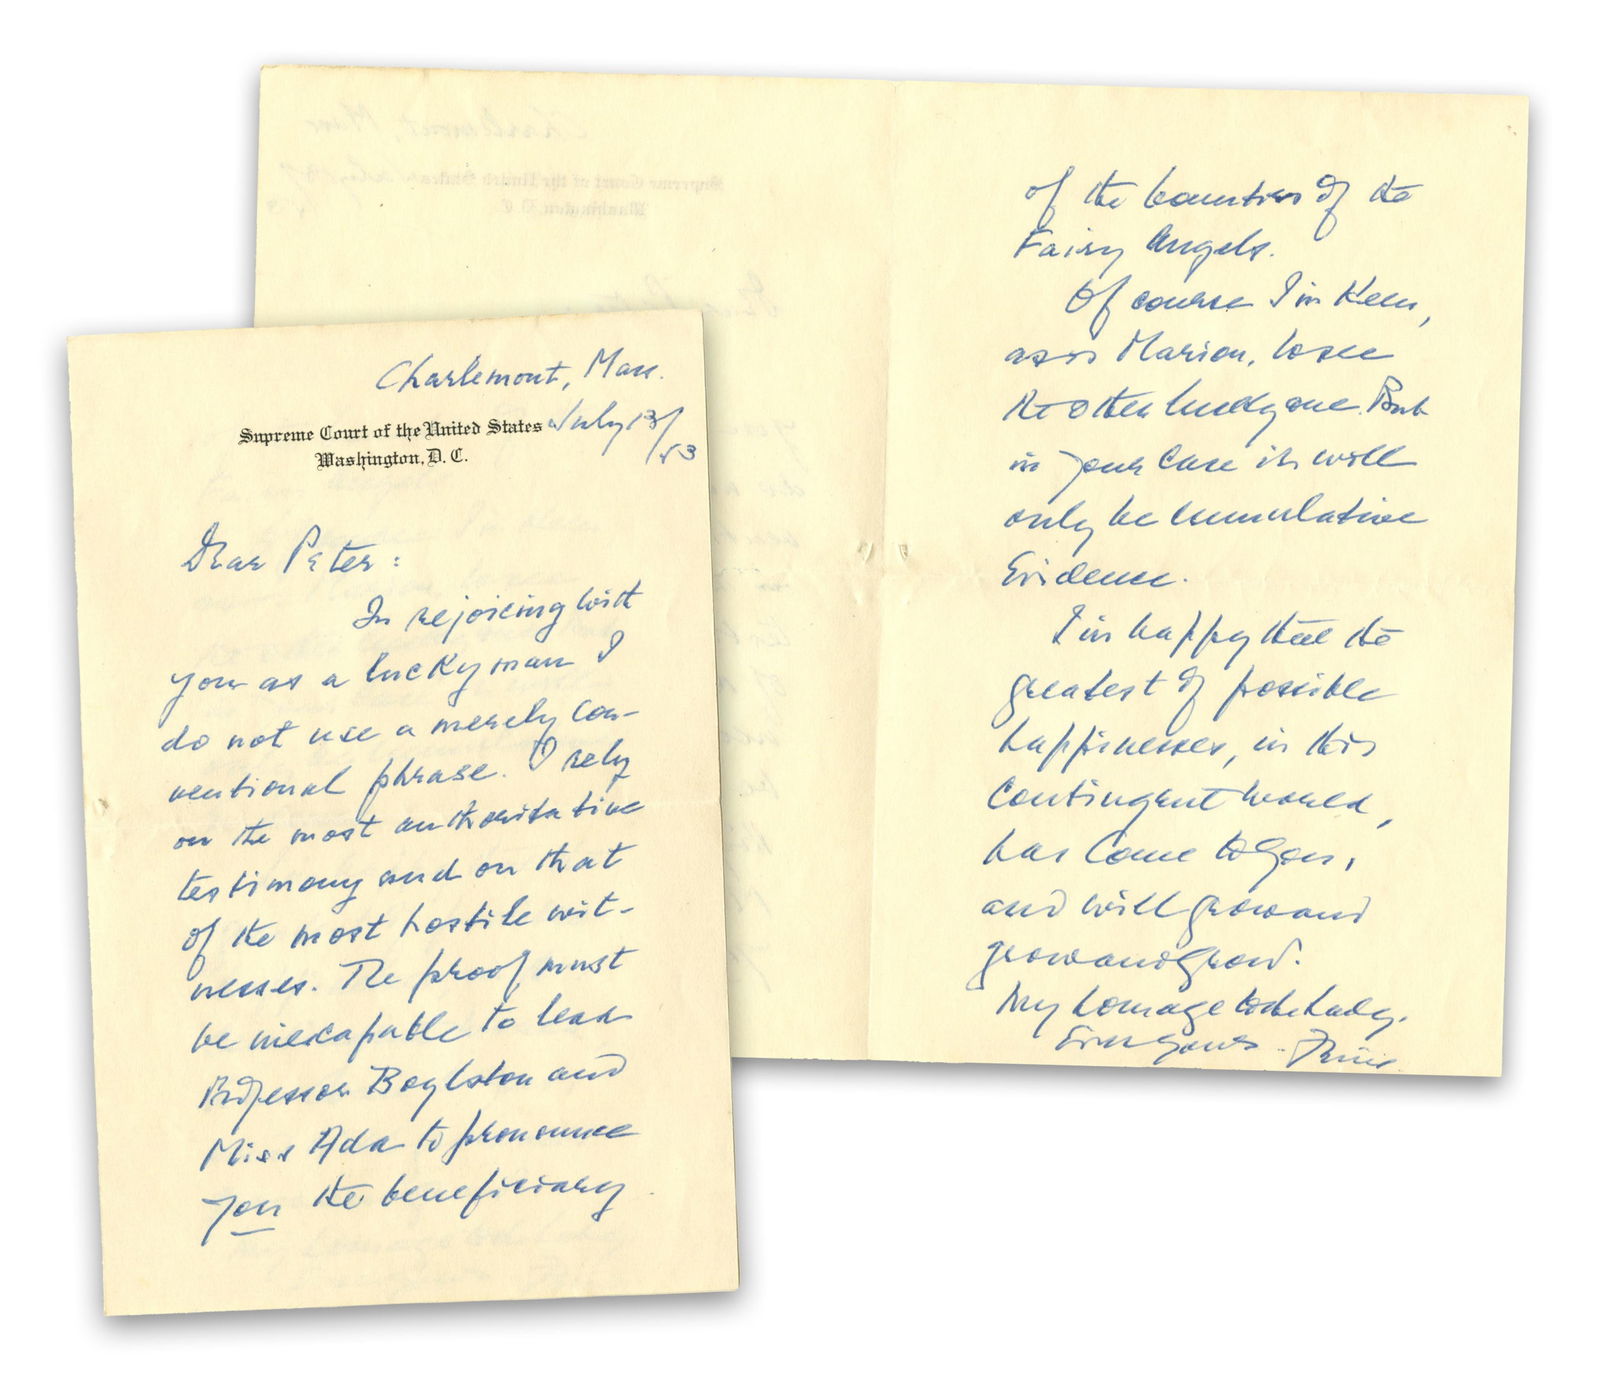 Charlemont, Mass.
Supreme Court of the United States July 13/
Washington, D. C. /53
Dear Peter:
In rejoicing with
you as a lucky man I
do not use a merely con-
ventional phrase. I rely
on the most authoritative
testimony and on that
of the most hostile wit-
nesses. The proof must
be inescapable to lead
Professor Boylston and
Miss Ada to pronounce
you the beneficiary
of the bounties of the
Fairy Angels.
Of course I'm keen,
as is Marion, to see
the other lucky one. But
in your case it will
only be cumulative
Evidence.
I'm happy that the
greatest of possible
happinesses, in this
contingent world,
has come to you,
and will grow and
grow and grow.
My homage to the Lady.
Ever yours